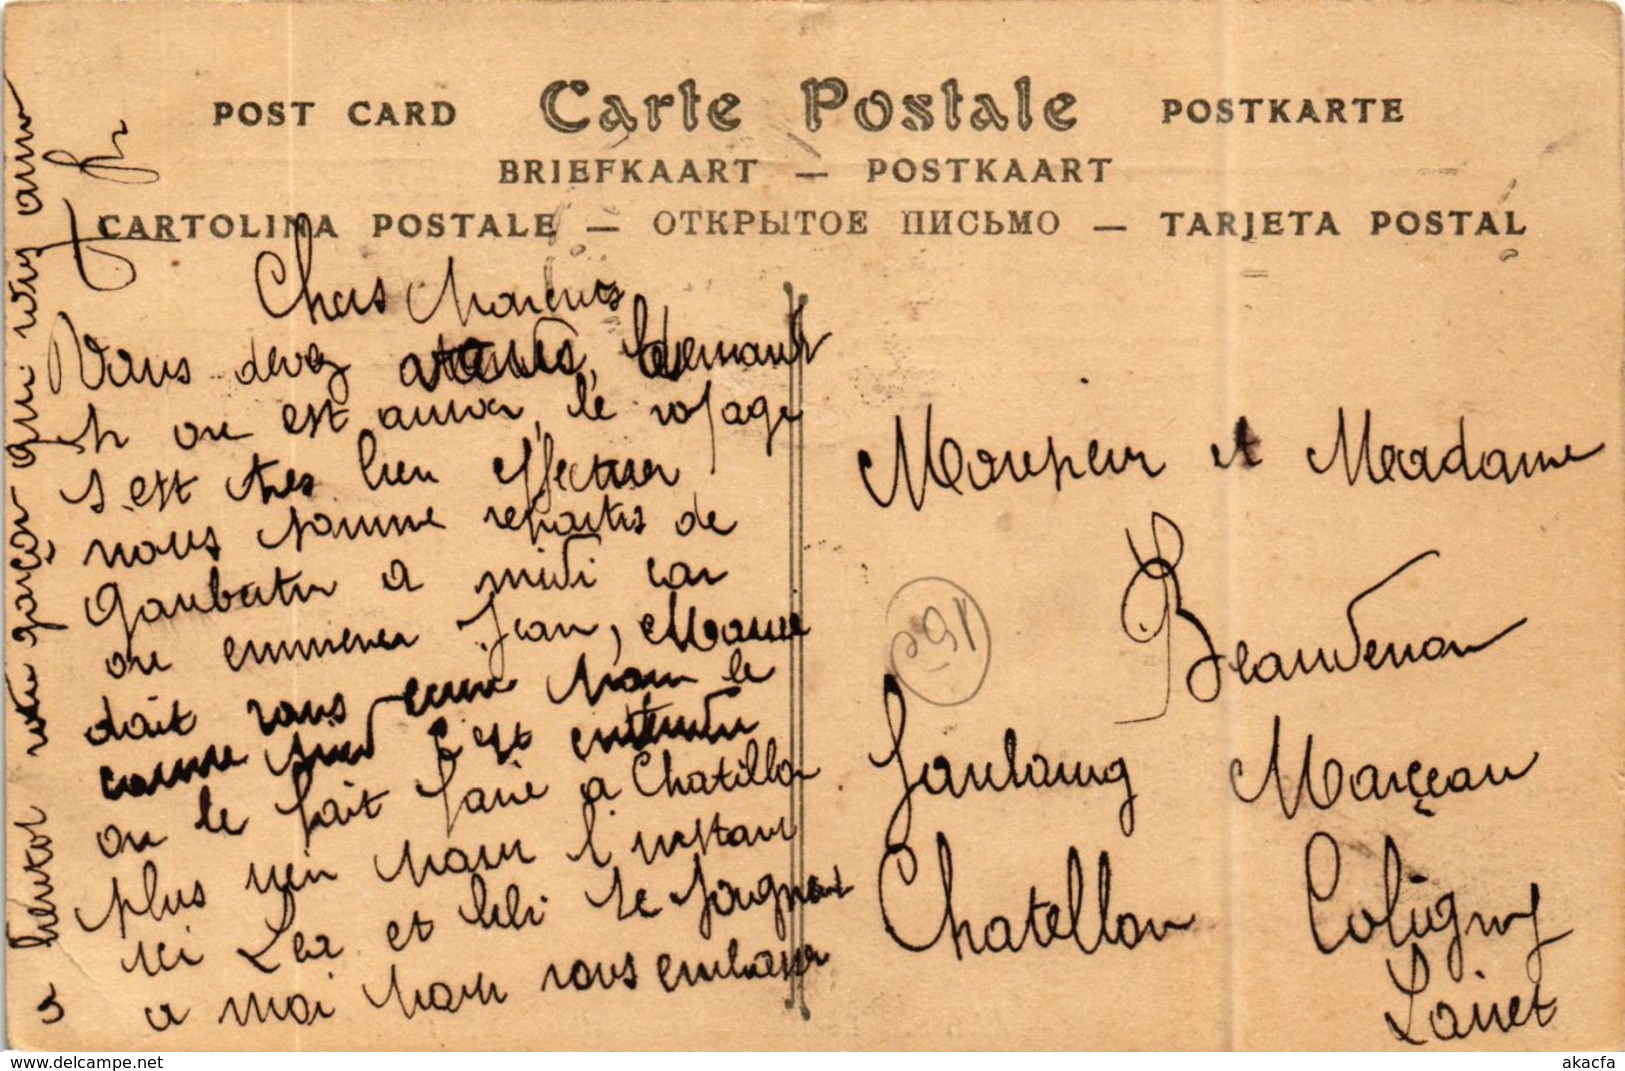 POST CARD Carte Postale POSTKARTE
BRIEFKAART — POSTKAART
CARTOLINA POSTALE — ОТКРЫТОЕ ПИСЬМО — TARJETA POSTAL
Chers
Vous devez
on est le voyage
s'est tres bien effectuer
nous somme repartis de
a midi car
on emmener Jean,
dait vous
comme s'est entendu
on le fait faire a Chatillon
plus rien pour l'instant
ici Lea et bebe se joignent
a moi pour vous embrasser
a bientot votre garçon qui vous aime
Monsieur et Madame
Beaudenon
Faubourg Marçeau
Chatillon Coligny
Loiret
akacfa
www.delcampe.net